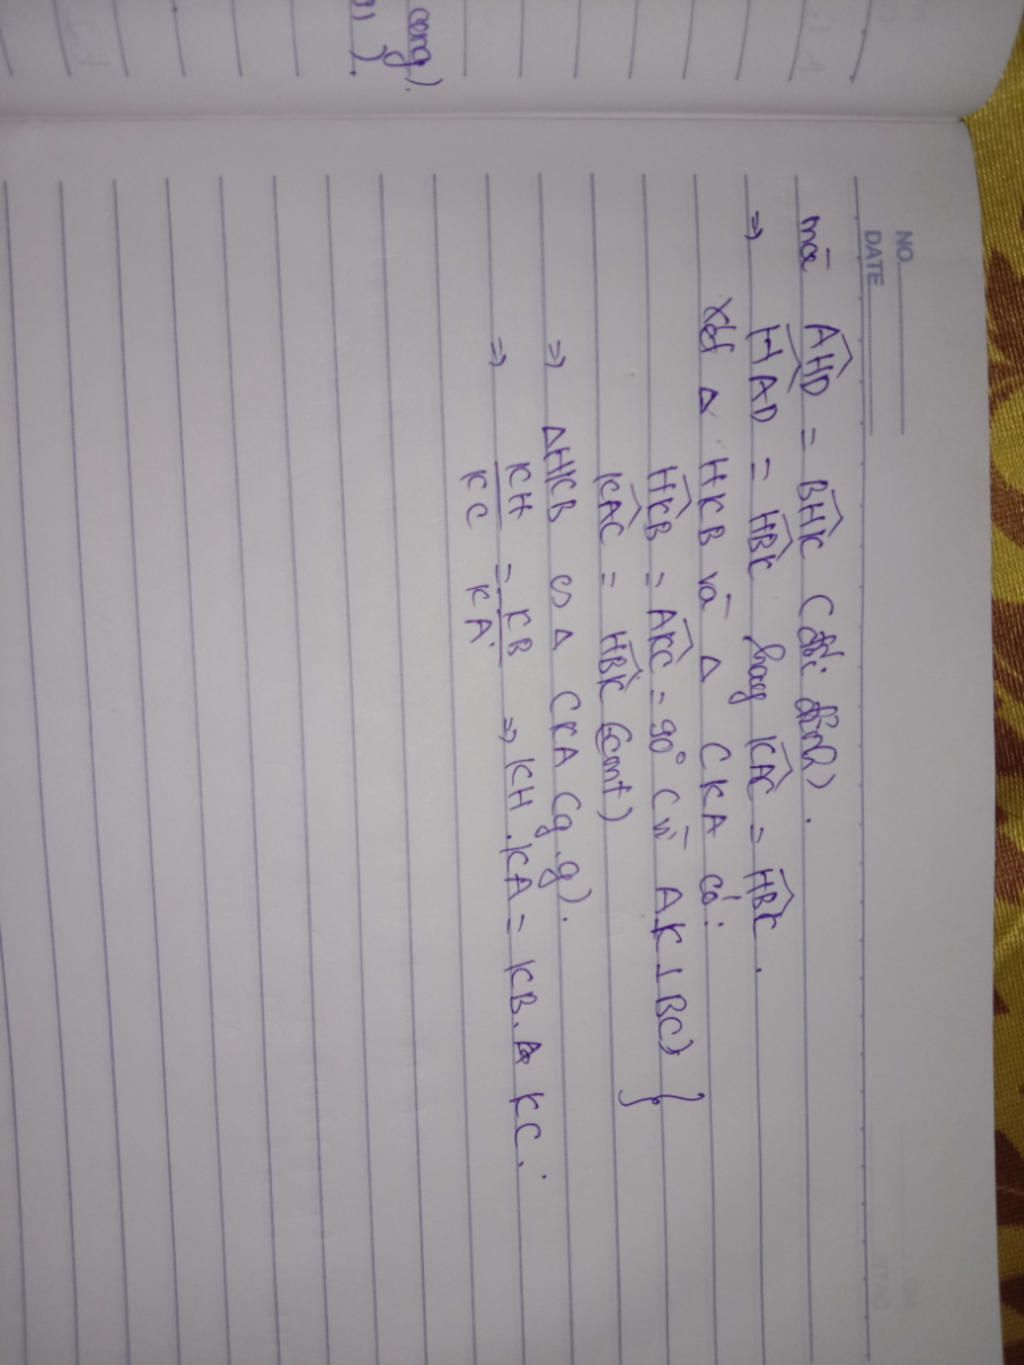 cong).
).
NO.
DATE
mà AHD = BHK (đối đỉnh).
⇒ HAD = HBK hay KAC = HBK.
Xét Δ HKB và Δ CKA có:
HKB = AKC = 90° (vì AK ⊥ BC) }
KAC = HBK (cmt)
⇒ ΔHKB ∽ Δ CKA (g.g).
⇒ KH/KC = KB/KA ⇒ KH.KA = KB.KC.